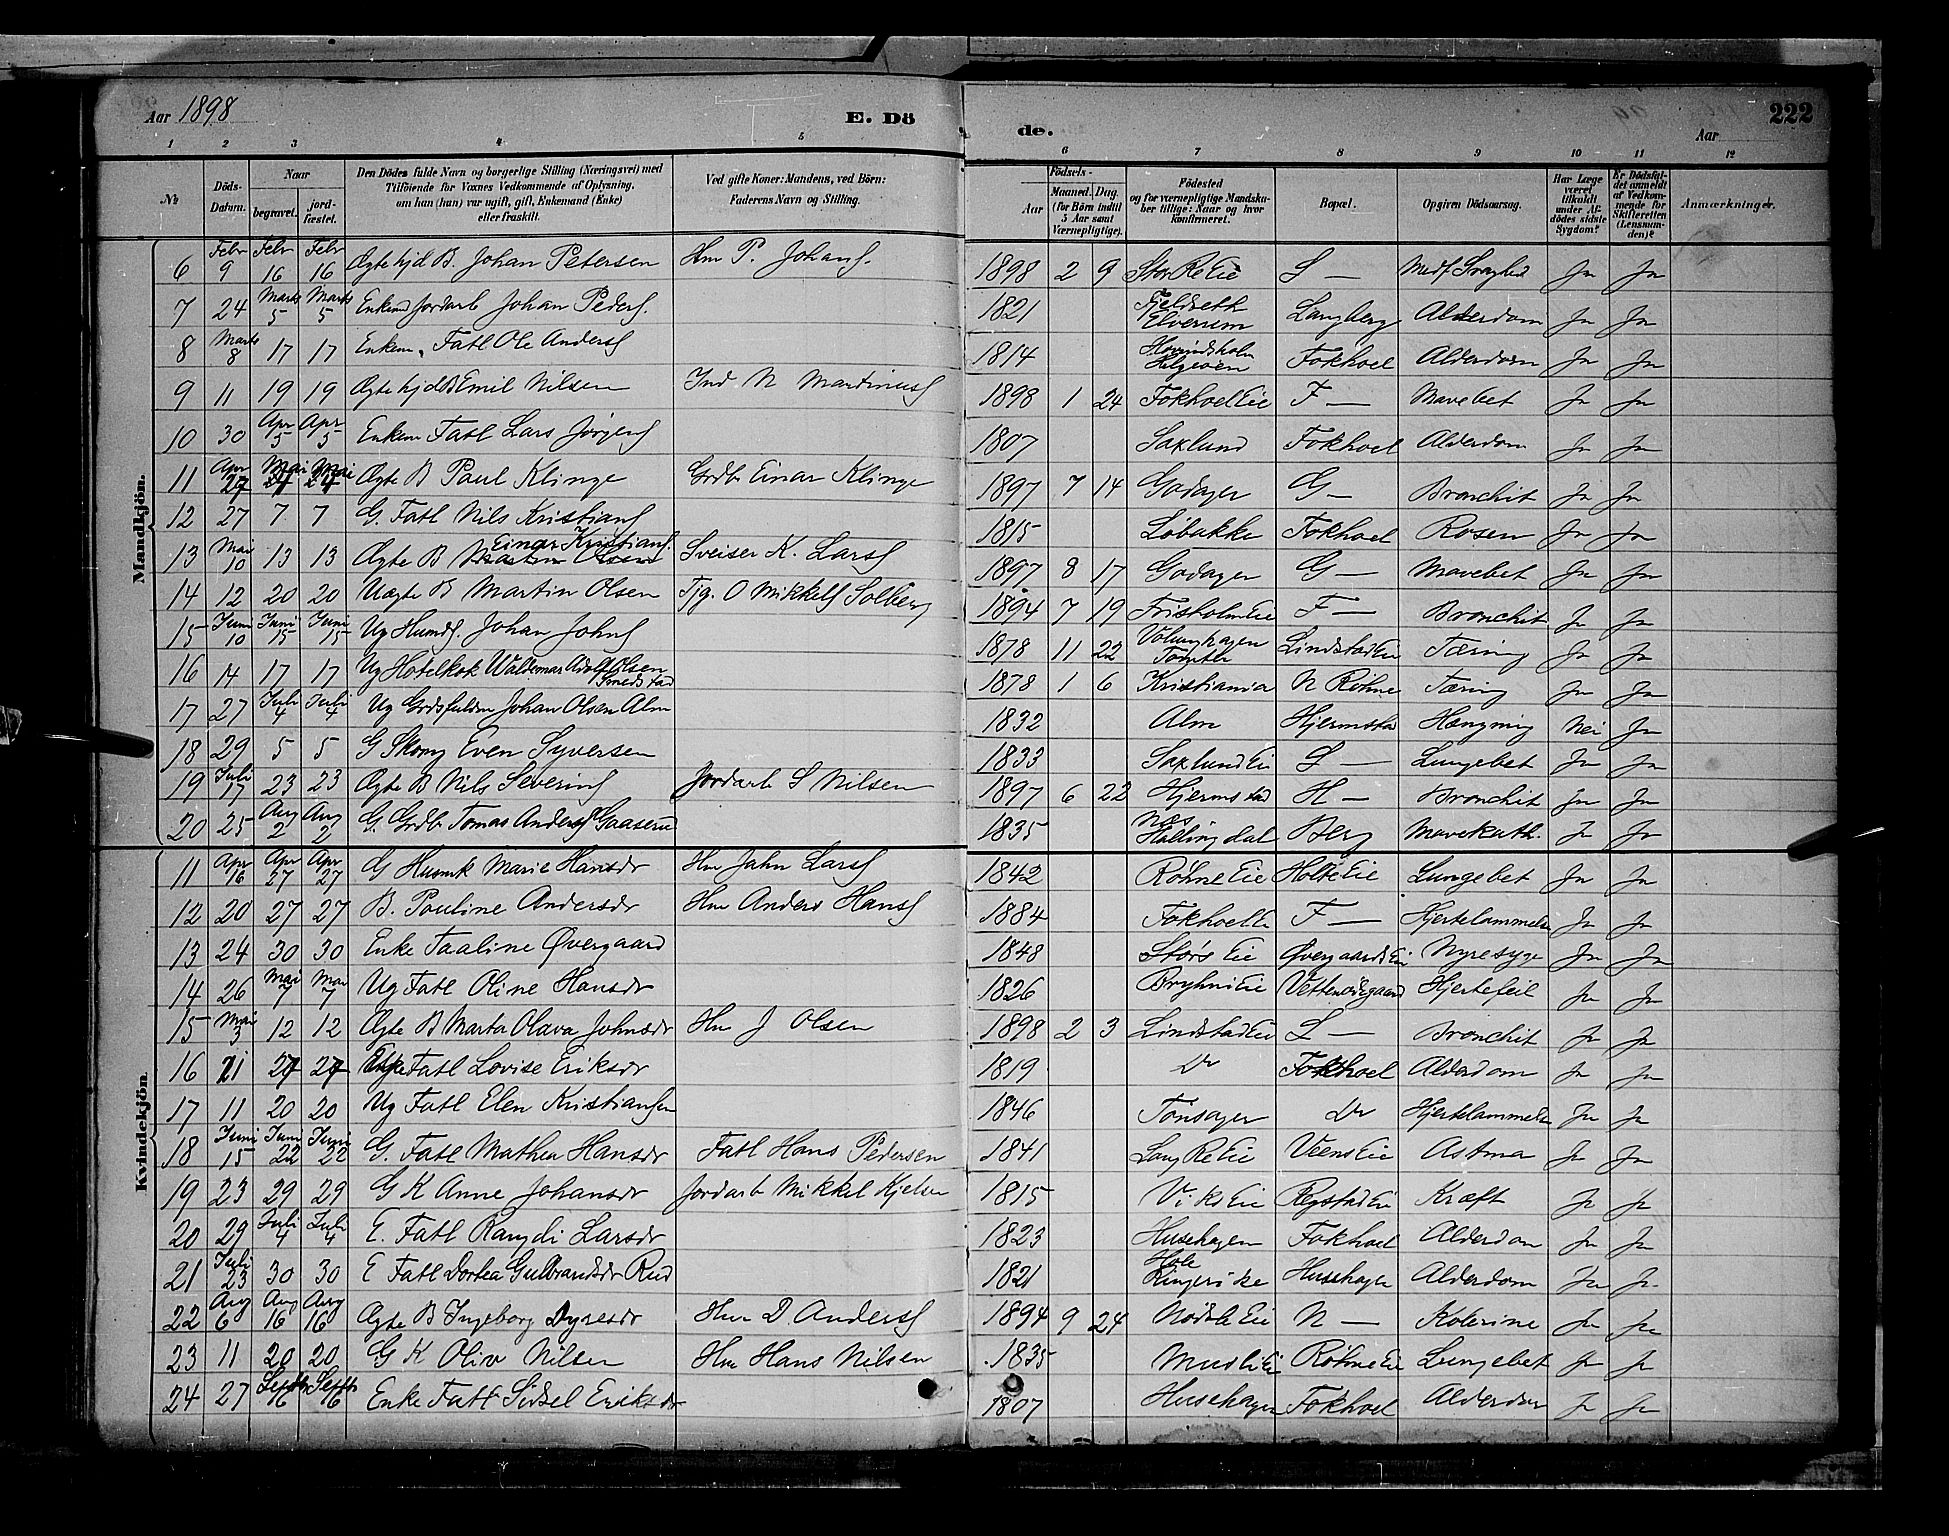 Aar 1898 E. Dö de. Aar 222
1 2 3 4 5 6 7 8 9 10 11 12
№ Döds-Datum. Naar begravet. jordfæstet. Den Dödes fulde Navn og borgerlige Stilling (Næringsvei) med Tilföiende for Voxnes Vedkommende af Oplysning, om han (hun) var ugift, gift, Enkemand (Enke) eller fraskilt. Ved gifte Koner: Mandens, ved Börn: Faderens Navn og Stilling. Födsels- Aar Maaned. Dag. (for Börn indtil 5 Aar samt Værnepligtige). Födested og for værnepligtige Mandskaber tillige: Naar og hvor Konfirmeret. Bopæl. Opgiven Dödsaarsag. Har Læge været tilkaldt under Afdödes sidste Sygdom? Er Dödsfaldet anmeldt af Vedkommende for Skifteretten (Lensmanden)? Anmærkninger.
Mandkjön.
6 Febr 9 Febr 16 Febr 16 Ægte hjd B. Johan Petersen Hm P. Johans. 1898 2 9 Stor Re Eie S — Medf Svaghed Ja Ja
7 24 Marts 5 Marts 5 Enkem Jordarb Johan Peders. 1821 Fjeldseth Elverum Langberg Alderdom Ja Ja
8 Marts 8 17 17 Enkem. Fatl Ole Anders 1814 Hovindsholm Helgøen Fokhoel Alderdom Ja Ja
9 11 19 19 Ægte hjd B Emil Nilsen Ind N Martinius 1898 1 24 Fokhoel Eie F — Mavebet Ja Ja
10 30 Apr 5 Apr 5 Enkem Fatl Lars Jörgens 1807 Saxlund Fokhoel Alderdom Ja Ja
11 Apr 27 Mai 24 Mai 24 Ægte B Paul Klinge Grdb Einar Klinge 1897 7 14 Godager G — Bronchit Ja Ja
12 27 7 7 G. Fatl Nils Kristians 1815 Löbakke Fokhoel Rosen Ja Ja
13 Mai 10 13 13 Ægte B Einar Kristians. Sveiser K. Lars 1897 8 17 Godager G — Mavebet Ja Ja
14 12 20 20 Uægte B Martin Olsen Tjg. O Mikkels Solberg 1894 7 19 Frisholm Eie F — Bronchit Ja Ja
15 Juni 10 Juni 15 Juni 15 Ug Husmds. Johan Johns 1878 11 22 Tomter Lindstad Eie Tæring Ja Ja
16 14 17 17 Ug Hotelkok Waldemar Adolf Olsen Smedstad 1878 1 6 Kristiania N Röhne Tæring Ja Ja
17 27 Juli 4 Juli 4 Ug Johan Olsen Alm 1832 Alm Hjermstad Hængning Nei Ja
18 29 5 5 G Skom Even Syversen 1833 Saxlund Ei S — Lungebet Ja Ja
19 Juli 17 23 23 Ægte B Nils Severins Jordarb S Nilsen 1897 6 22 Hjermstad H — Bronchit Ja Ja
20 25 Aug 2 Aug 2 G. Grdb Tomas Anders Gaaserud 1835 Næs Hallingdal Berg Mavekath. Ja Ja
Kvindekjön.
11 Apr 16 Apr 27 Apr 27 G Husmk Marie Hansdr Hm Jahn Lars 1842 Röhne Eie Holte Eie Lungebet Ja Ja
12 20 27 27 B. Pauline Andersdr Hm Anders Hans 1884 Fokhoel Ei F — Hjertelammelse Ja Ja
13 24 30 30 Enke Taaline Øvergaard 1848 Störs Eie Øvergaards Ei Nyresyge Ja Ja
14 26 Mai 7 Mai 7 Ug Fatl Oline Hansdr 1826 Bryhni Eie Hjertefeil Ja Ja
15 Mai 3 12 12 Ægte B Marta Olava Johnsdr Hm J Olsen 1898 2 3 Lindstad Ei L — Bronchit Ja Ja
16 11 24 24 Enke Fatl Lovise Eriksdr 1819 Do Fokhoel Alderdom Ja Ja
17 11 20 20 Ug Fatl Elen Kristiansen 1846 Tönsager Do Hjertelammelse Ja Ja
18 Juni 15 Juni 22 Juni 22 G. Fatl Mathea Hansdr Fatl Hans Pedersen 1841 Lang Re Eie Veens Eie Astma Ja Ja
19 23 29 29 G K Anne Johansdr Jordarb Mikkel Kjelsen 1815 Viks Eie Regstad Ei Kræft Ja Ja
20 29 Juli 4 Juli 4 E. Fatl Rangdi Larsdr 1823 Husehagen Fokhoel Alderdom Ja Ja
21 Juli 23 30 30 E Fatl Dortea Gulbrandsdr Rud 1821 Hole Ringerike Husehagen Alderdom Ja Ja
22 Aug 6 Aug 16 Aug 16 Ægte B Ingeborg Dyresdr Hm D Anders 1894 9 24 Nödsle Eie N — Kolerine Ja Ja
23 11 20 20 G K Oliv Nilsen Hm Hans Nilsen 1835 Musli Ei Röhne Ei Lungebet Ja Ja
24 27 Septb 16 Septb 16 Enke Fatl Sidsel Eriksdr 1807 Husehagen Fokhoel Alderdom Ja Ja